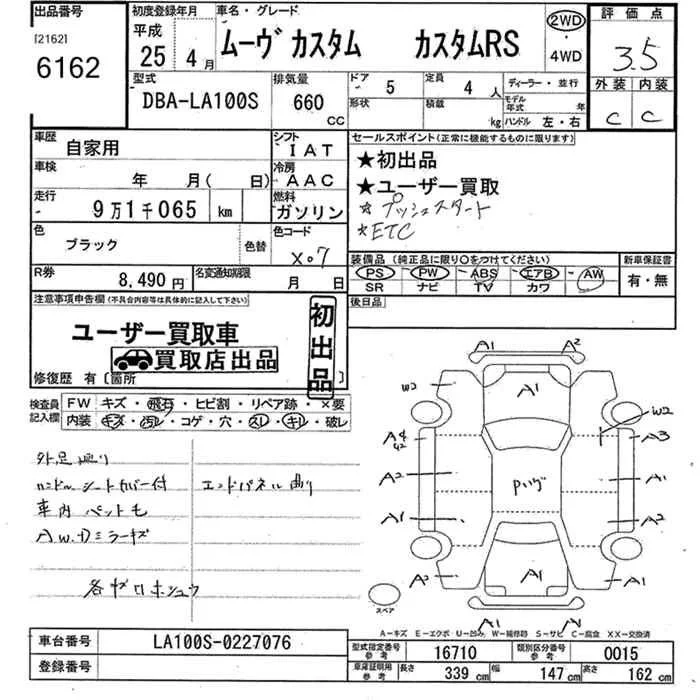 出品番号
[2162]
6162
初度登録年月
平成
25年 4月
車名・グレード
ムーヴ カスタム カスタムRS
2WD
・
4WD
評価点
3.5
外装 内装
C C
型式
DBA-LA100S
排気量
660
CC
ドア 5
定員 4人
形状
積載 kg
ディーラー・並行
モデル年式 年
ハンドル 左・右
車歴 自家用
シフト IAT
車検 年 月( 日)
冷房 AAC
走行 9万1千065 km
燃料 ガソリン
色 ブラック
色替
色コード X07
R券 8,490円
名変通知期限 月 日
セールスポイント(正常に機能するものに限ります)
★初出品
★ユーザー買取
☆プッシュスタート
☆ETC
装備品(純正品に限り○をつけてください)
新車保証書
PS・PW・ABS・エアB・AW
SR ナビ TV カワ
有・無
後日品
注意事項申告欄(不具合内容等は具体的に記入して下さい)
ユーザー買取車
買取店出品
初出品
修復歴 有〔箇所
検査員記入欄
FW キズ・飛石・ヒビ割・リペア跡・×要
内装 キズ・汚レ・コゲ・穴・スレ・キレ・破レ
外足廻り
ハンドル シートカバー付
エンドパネル曲り
車内 ペットモ
AW.Dミラーキズ
A1 A2
W2 A1
W2
A4 A3
42
A2 Pルーフ A1
A1 A2
A2 A1 A1
A1
スペア
A-キズ E-エクボ U-凹み W-補修跡 S-サビ C-腐食 XX-交換済
車台番号 LA100S-0227076
登録番号
型式指定番号参考 16710
類別区分番号参考 0015
車庫証明用参考 長さ 339cm 幅 147cm 高さ 162cm